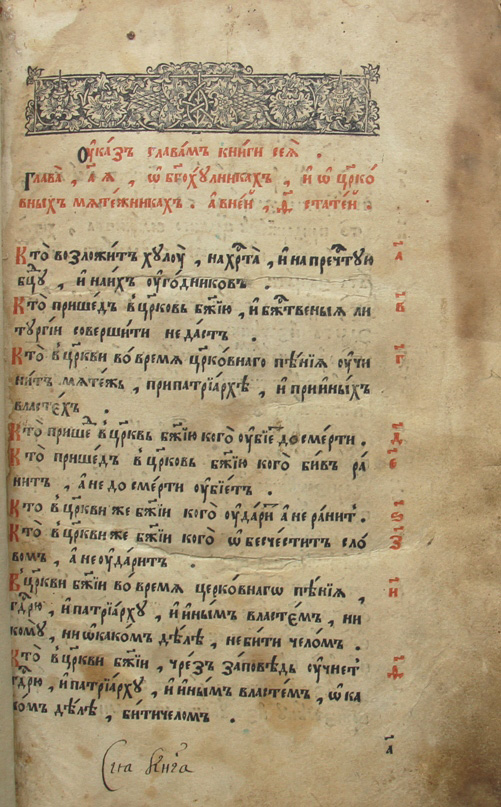 Оу҆ка́зъ главáмъ кни́ги сеѧ̀ .
Глава̀ , а҃ ѧ , ѡ҆ бг҃оху́лникахъ , и҆ ѡ҆ цр҃ко́
вныхъ мѧте́жникахъ . а҆ вне́й , ѳ҃ стате́й .
Кто̀ возложи́тъ хулоу̀ , на хрⷭ҇та̀ , и҆ на пречⷭ҇тую а҃
бцⷣу , и҆ наи́хъ оу҆го́дников .
Кто̀ прише́дъ в цр҃ковь бж҃їю , и҆ бжⷭ҇твеныѧ ли в҃
тургі́и соверши́ти неда́стъ .
Кто̀ в цр҃кви во вре́мѧ цр҃ко́внаго пѣ́нїѧ оу҆чи г҃
ни́тъ мѧте́жъ , припатрїа́рхѣ , и҆ прии́ныхъ
власте́хъ .
Кто̀ прише́ⷣ в цр҃квь бж҃їю кого̀ оу҆бїе́ до сме́рти . д҃
Кто̀ прише́дъ в цр҃ковь бж҃їю кого̀ би́въ ра́ е҃
нитъ , а҆ не до сме́рти оу҆бїе́тъ .
Кто̀ в цр҃кви же бж҃їи кого̀ оу҆да́ри а҆ не ра́нит . ѕ҃
Кто̀ в цр҃кви же бж҃їи кого̀ ѡ҆бесче́стит сло́ з҃
вомъ , а҆ неоу҆да́ритъ .
В цр҃кви бж҃їи во вре́мѧ церко́внагѡ пѣ́нїѧ , и҃
гдⷭ҇рю , и҆ патрїа́рху , и҆ и҆ны́мъ власте́мъ , ни
кому̀ , ни ѡ҆ како́м дѣ́лѣ , не би́ти чело́мъ .
Кто̀ в цр҃кви бж҃їи , чре́зъ за́повѣдь оу҆чнет ѳ҃
гдⷭ҇рю , и҆ патрїа́рху , и҆ и҆ны́мъ власте́мъ , ѡ҆ ка
ко́мъ дѣ́лѣ , би́ти чело́мъ .
а҃
Сиа Книга